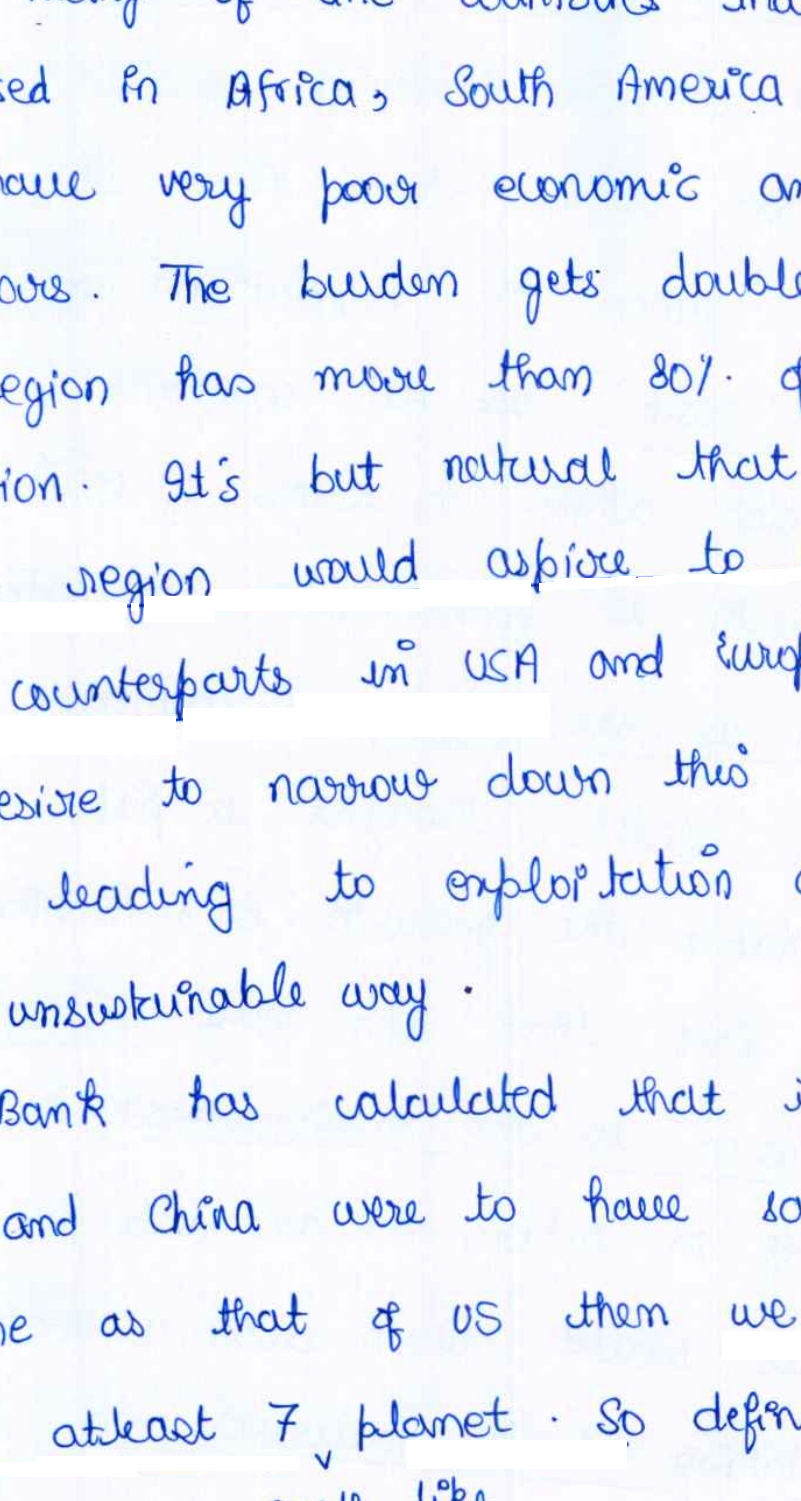 of the
sed in Africa, South America
have very poor economic an
ours. The burden gets double
egion has more than 80%. of
ion. It's but natural that
region would aspire to
counterparts in USA and Europ
esire to narrow down this
leading to exploitation o
unsustainable way.
Bank has calculated that i
and China were to have so
ne as that of US then we
atleast 7 planet. So defin
earth like